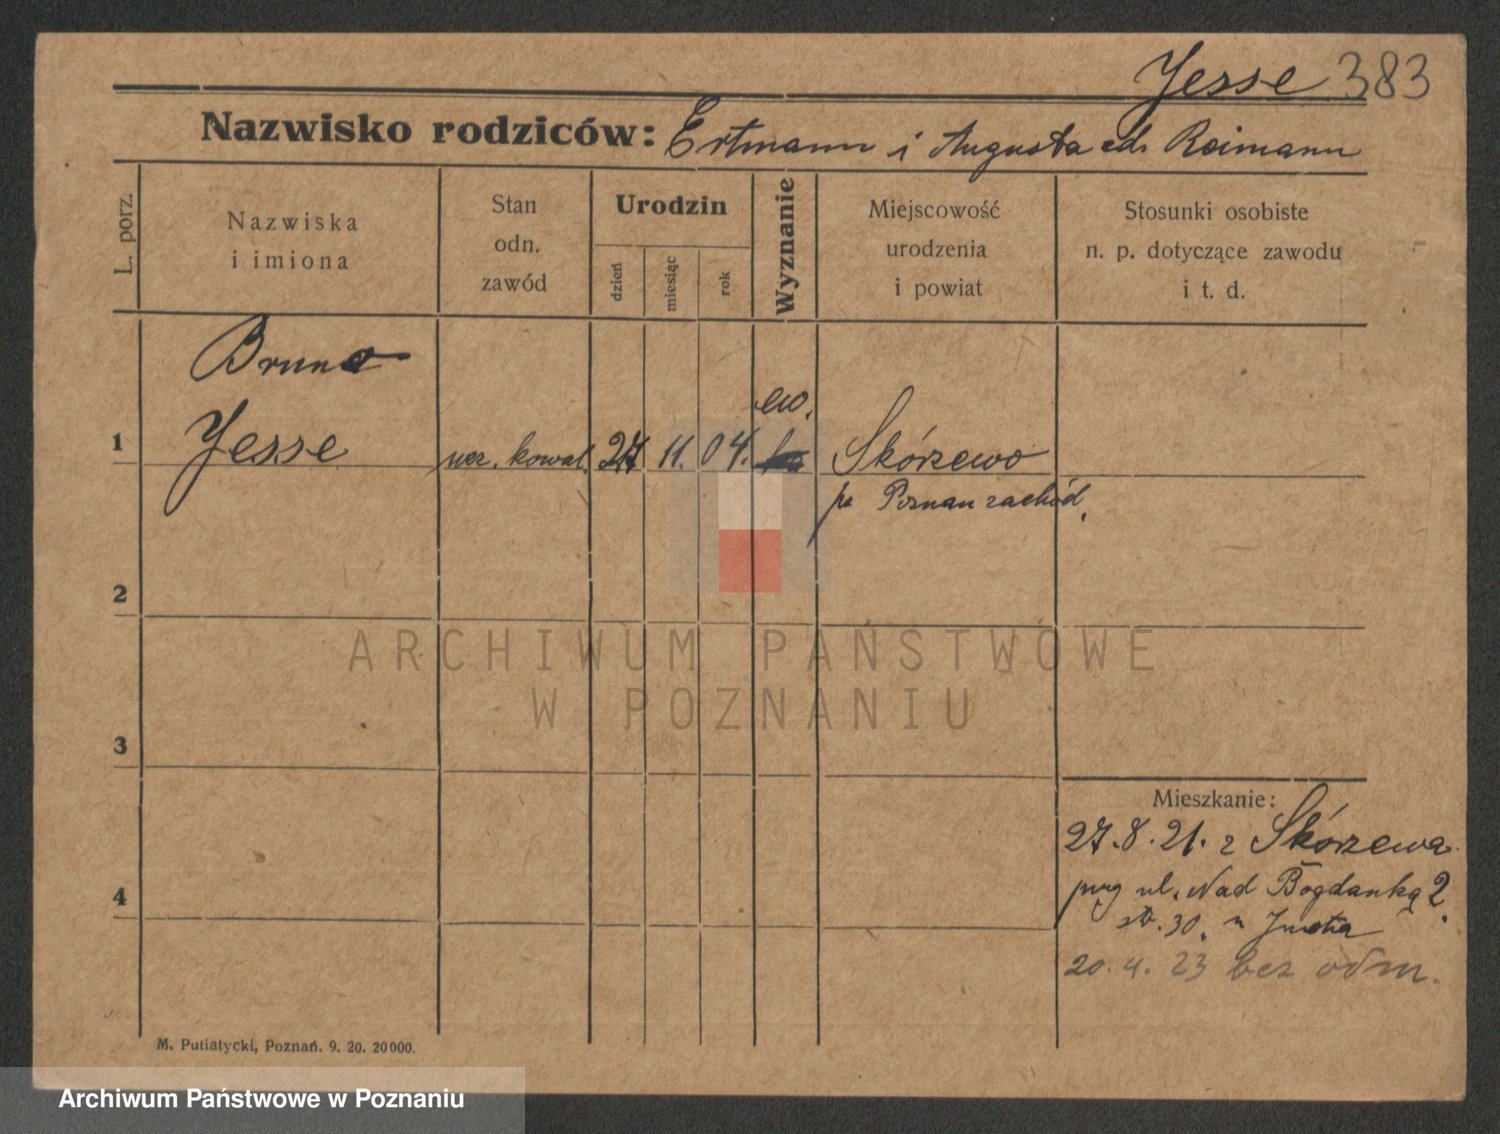 Jesse 383
Nazwisko rodziców: Ertmann i Augusta Reimann
L. porz.
Nazwiska
i imiona
Stan
odn.
zawód
Urodzin
dzień
miesiąc
rok
Wyznanie
Miejscowość
urodzenia
i powiat
Stosunki osobiste
n. p. dotyczące zawodu
i t. d.
Bruno
ew.
1 Jesse ucz. kowal. 27 11. 04. Skórzewo
Poznan zachód.
2
3
4
Mieszkanie:
27.8.21. z Skórzewa
ul. Nad Bogdanką 2.
30.
20.4.23 bez odm.
M. Putiatycki, Poznań. 9. 20. 20000.
ARCHIWUM PAŃSTWOWE
W POZNANIU
Archiwum Państwowe w Poznaniu